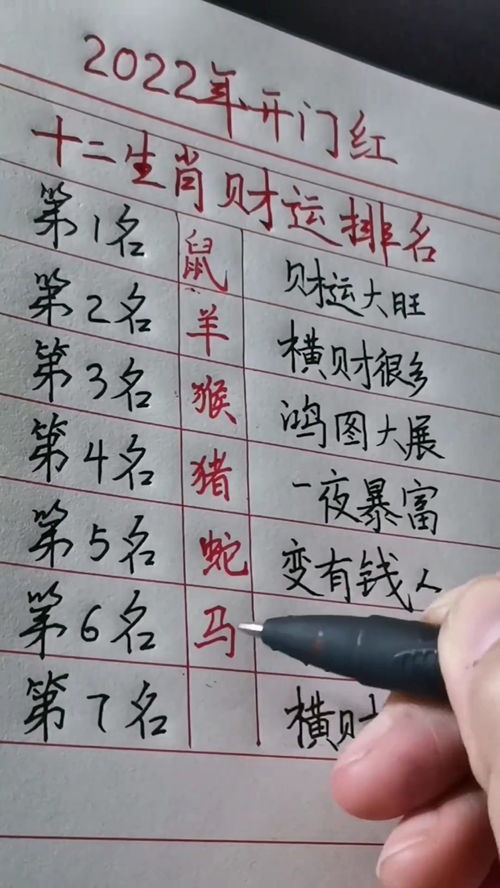 2022年开门红
十二生肖财运排名
第1名 鼠 财运大旺
第2名 羊 横财很多
第3名 猴 鸿图大展
第4名 猪 一夜暴富
第5名 蛇 变有钱人
第6名 马
第7名 横财